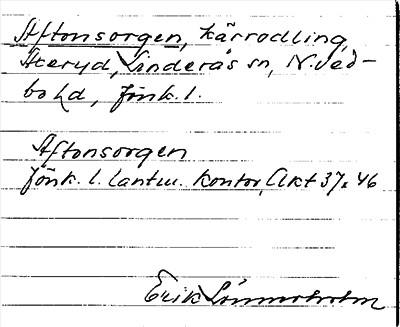 Aftonsorgen, kärrodling,
Åkeryd, Linderås sn, N. Ved-
bo hd, Jönk. l.
Aftonsorgen
Jönk. l. lantm. kontor, Akt 37 x 46
Erik Lönnerholm